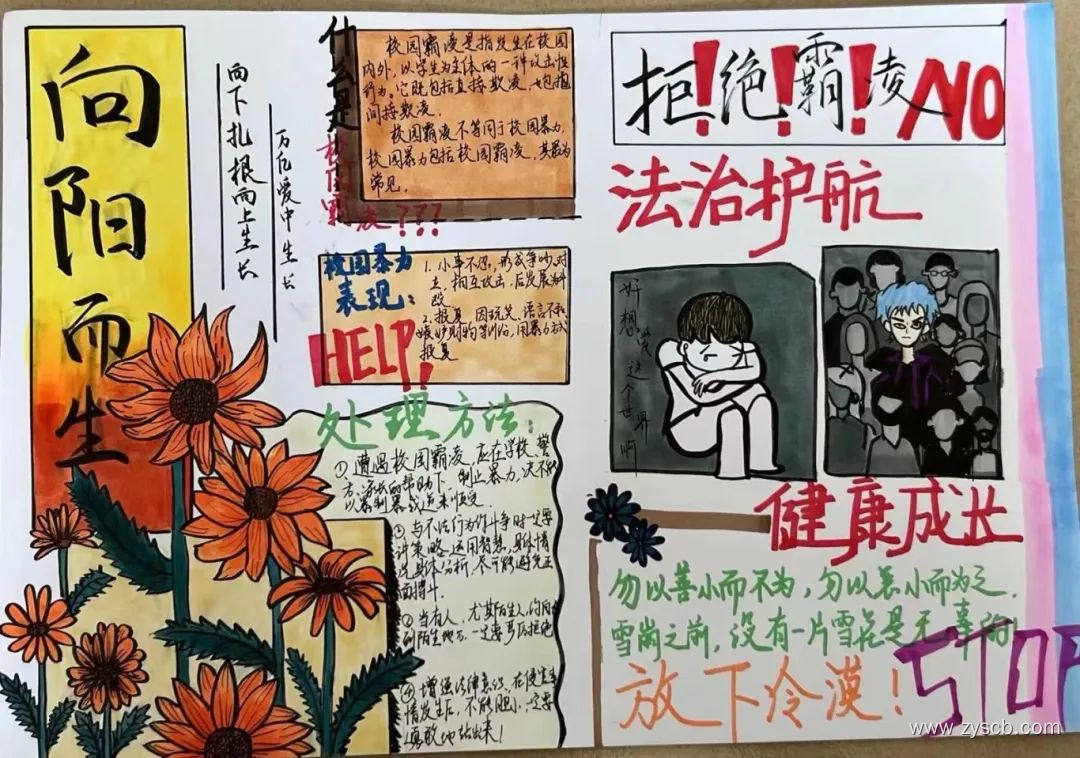 向阳而生
向下扎根向上生长
万亿爱中生长
什么是校园霸凌???
校园霸凌是指发生在校园
内外,以学生为主体的一种攻击性
行为。它既包括直接欺凌,也包括
间接欺凌。
校园霸凌不等同于校园暴力,
校园暴力包括校园霸凌,其最为
常见。
校园暴力
表现:
HELP!
1.小事不忍,形成争吵,对
立,相互攻击,后发展为
2.报复 因玩笑、语言不
报复
处理方法
①遭遇校园霸凌,应在学校、警
方、家长的帮助下,制止暴力,决不能
以暴制暴或逆来顺受
③与不法行为作斗争时一定要
讲策略 运用智慧,具体情
况具体分析,尽可能避免正
面搏斗.
②当有人,尤其陌生人约同
到陌生地方一定要予以拒绝
④增强法律意识,在侵害事
情发生后,不能胆小,一定要
勇敢地站出来!
拒!绝!霸!凌 NO
法治护航
好想 这个世界啊
健康成长
勿以善小而不为,勿以恶小而为之.
雪崩之前,没有一片雪花是无辜的!
放下冷漠!
STOP
www.zyscb.com